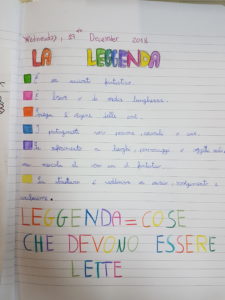 Wednesday, 19th December 2018
LA LEGGENDA
È un racconto fantastico.
È breve o di media lunghezza.
Spiega l'origine delle cose.
I protagonisti sono persone, animali e cose.
Fa riferimento a luoghi, personaggi e oggetti reali,
ma mescola il vero con il fantastico.
La struttura è suddivisa in inizio, svolgimento e
conclusione.
LEGGENDA = COSE
CHE DEVONO ESSERE
LETTE